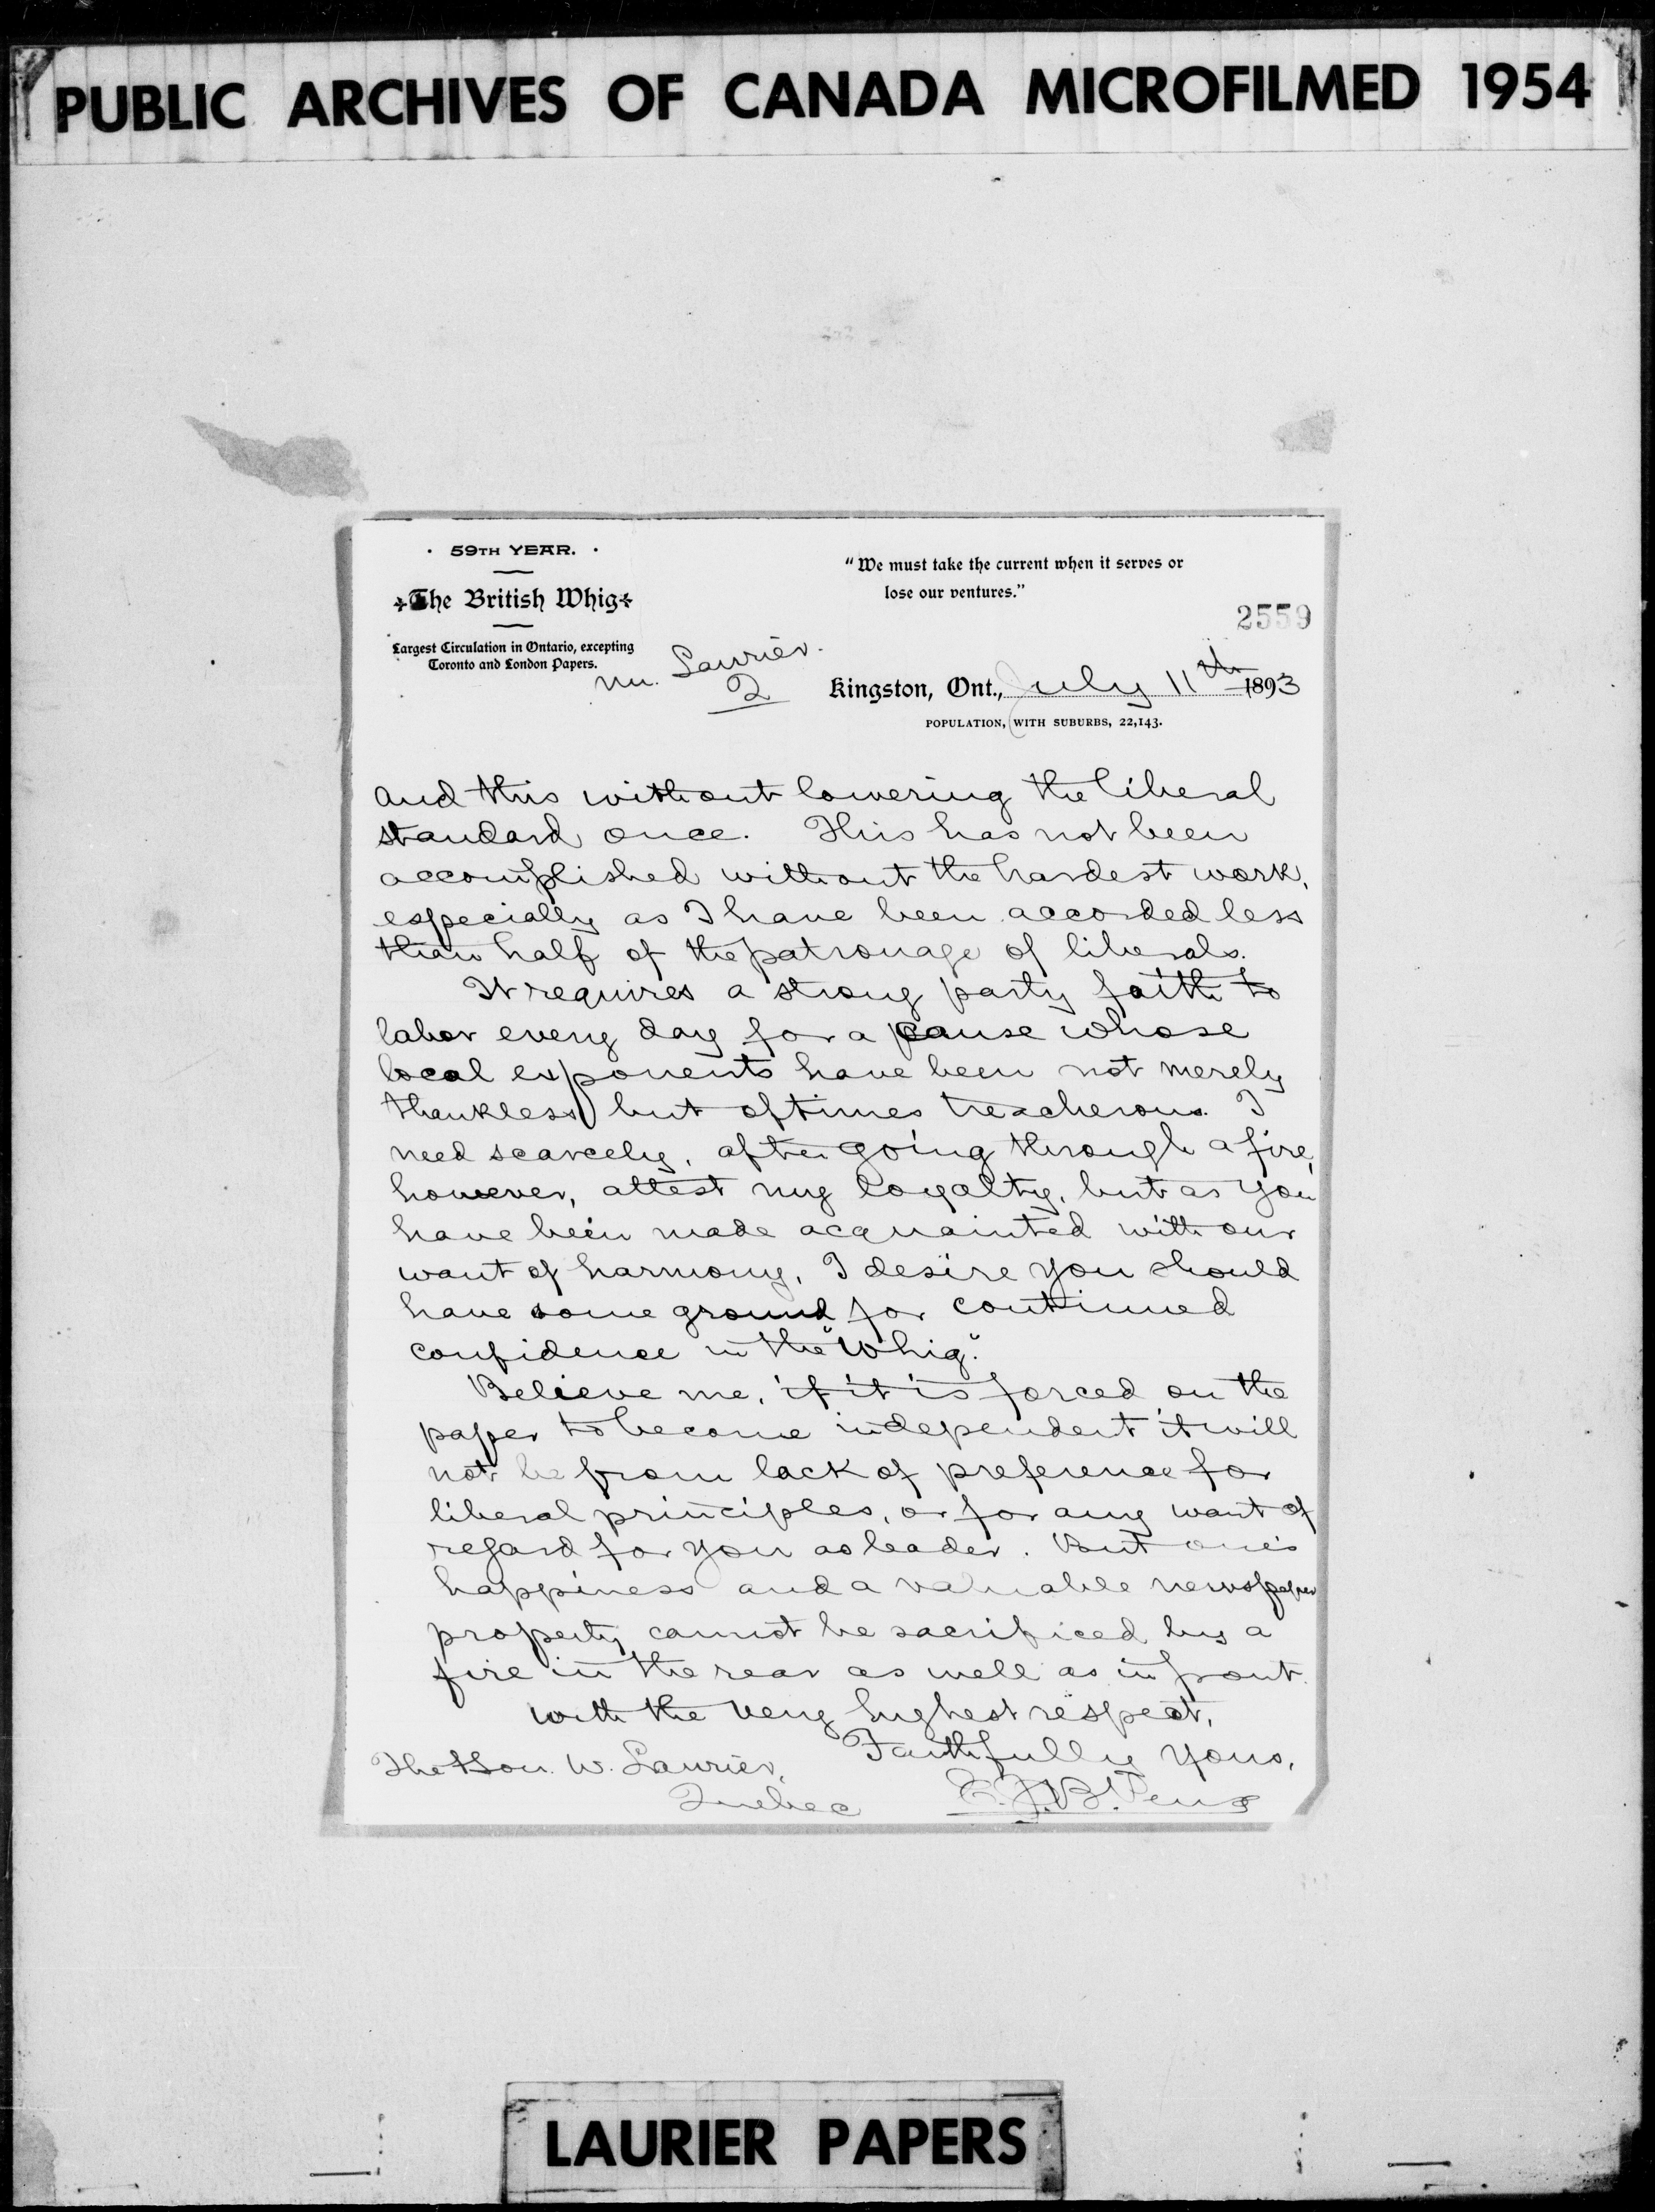 PUBLIC ARCHIVES OF CANADA MICROFILMED 1954
· 59TH YEAR. ·
The British Whig
Largest Circulation in Ontario, excepting
Toronto and London Papers.
"We must take the current when it serves or
lose our ventures."
2559
Mr. Laurier.
2
Kingston, Ont., July 11th 1893
POPULATION, WITH SUBURBS, 22,143.
and this without lowering the liberal
standard once. This has not been
accomplished without the hardest work,
especially as I have been accorded less
than half of the patronage of liberals.
It requires a strong party faith to
labor every day for a cause whose
local exponents have been not merely
thankless but oftimes treacherous. I
need scarcely, after going through a fire,
however, attest my loyalty, but as you
have been made acquainted with our
want of harmony, I desire you should
have some ground for continued
confidence in the "Whig."
Believe me, if it is forced on the
paper to become independent it will
not be from lack of preference for
liberal principles, or for any want of
regard for you as leader. But one's
happiness and a valuable newspaper
property cannot be sacrificed by a
fire in the rear as well as in front.
With the very highest respect,
Faithfully yours,
The Hon. W. Laurier,
Quebec
E.J.B. Pense
LAURIER PAPERS